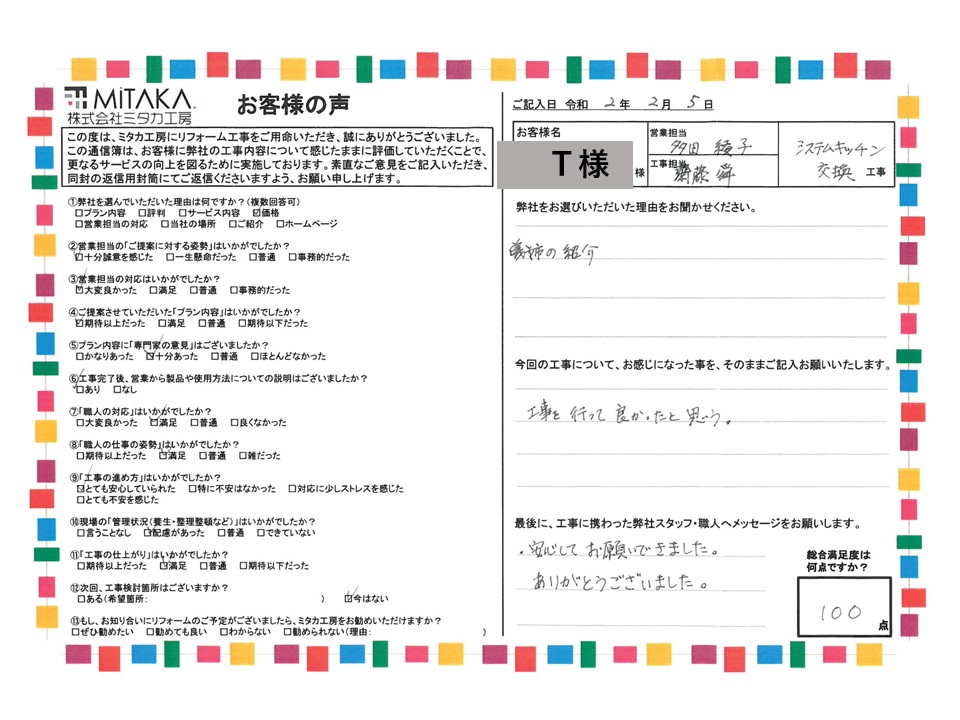 MiTAKA.
株式会社ミタカ工房
お客様の声
この度は、ミタカ工房にリフォーム工事をご用命いただき、誠にありがとうございました。
この通信簿は、お客様に弊社の工事内容について感じたままに評価していただくことで、
更なるサービスの向上を図るために実施しております。素直なご意見をご記入いただき、
同封の返信用封筒にてご返信くださいますよう、お願い申し上げます。
①弊社を選んでいただいた理由は何ですか？(複数回答可)
□プラン内容 □評判 □サービス内容 ☑価格
□営業担当の対応 □当社の場所 □ご紹介 □ホームページ
②営業担当の「ご提案に対する姿勢」はいかがでしたか？
☑十分誠意を感じた □一生懸命だった □普通 □事務的だった
③営業担当の対応はいかがでしたか？
☑大変良かった □満足 □普通 □事務的だった
④ご提案させていただいた「プラン内容」はいかがでしたか？
☑期待以上だった □満足 □普通 □期待以下だった
⑤プラン内容に「専門家の意見」はございましたか？
□かなりあった ☑十分あった □普通 □ほとんどなかった
⑥工事完了後、営業から製品や使用方法についての説明はございましたか？
☑あり □なし
⑦「職人の対応」はいかがでしたか？
□大変良かった ☑満足 □普通 □良くなかった
⑧「職人の仕事の姿勢」はいかがでしたか？
□期待以上だった ☑満足 □普通 □雑だった
⑨「工事の進め方」はいかがでしたか？
☑とても安心していられた □特に不安はなかった □対応に少しストレスを感じた
□とても不安を感じた
⑩現場の「管理状況(養生・整理整頓など)」はいかがでしたか？
□言うことなし ☑配慮があった □普通 □できていない
⑪「工事の仕上がり」はいかがでしたか？
□期待以上だった ☑満足 □普通 □期待以下だった
⑫次回、工事検討箇所はございますか？
□ある(希望箇所: ) ☑今はない
⑬もし、お知り合いにリフォームのご予定がございましたら、ミタカ工房をお勧めいただけますか？
□ぜひ勧めたい □勧めても良い □わからない □勧められない(理由: )
ご記入日 令和 2年 2月 5日
お客様名
T様
様
営業担当
多田 綾子
工事担当
齋藤 舜
システムキッチン
交換 工事
弊社をお選びいただいた理由をお聞かせください。
義姉の紹介
今回の工事について、お感じになった事を、そのままご記入お願いいたします。
工事を行って良かったと思う。
最後に、工事に携わった弊社スタッフ・職人へメッセージをお願いします。
・安心してお願いできました。
ありがとうございました。
総合満足度は
何点ですか？
100
点